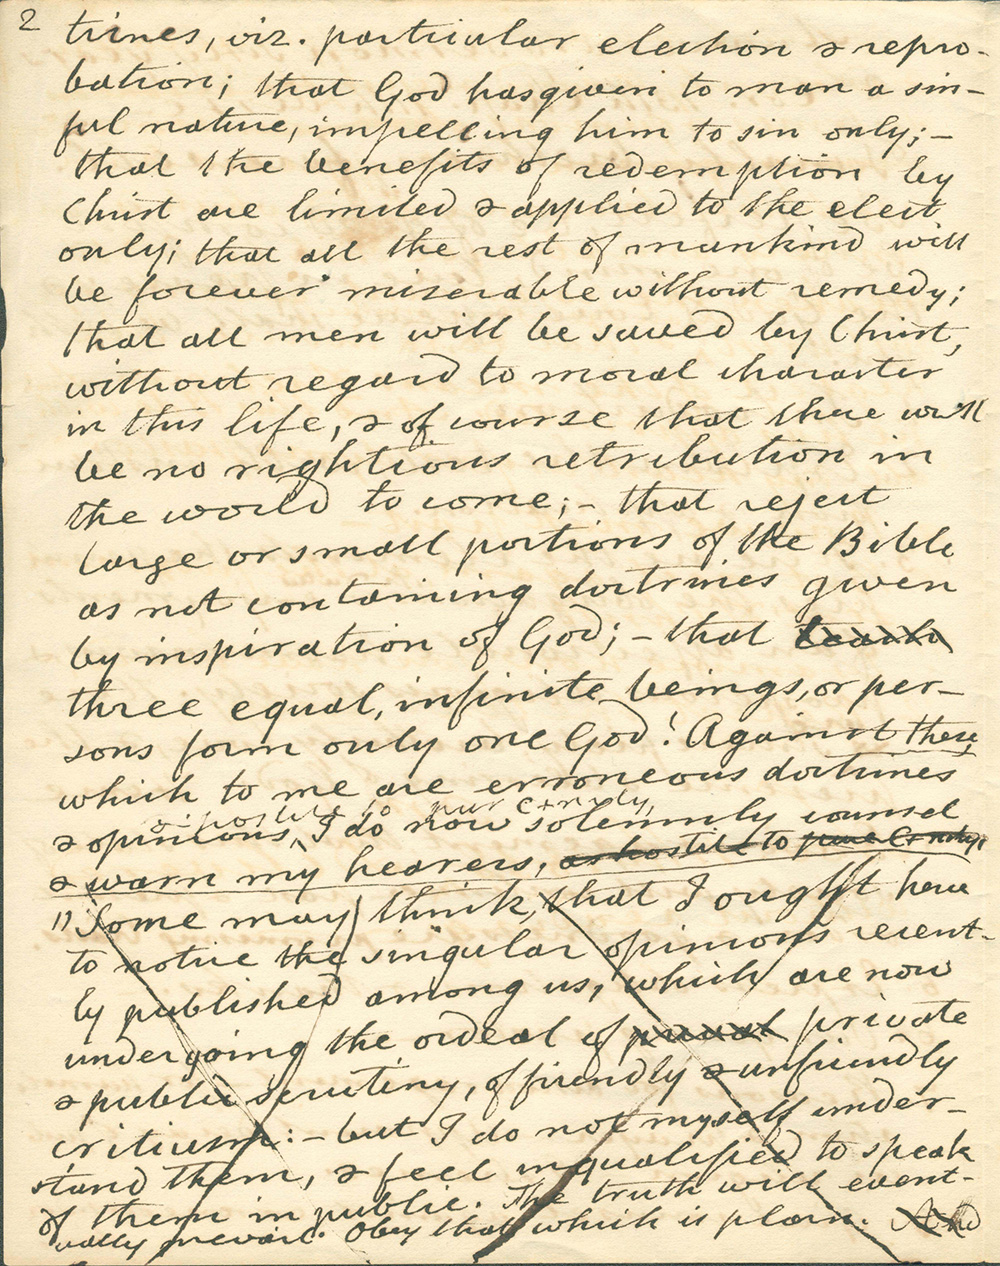 2
trines, viz. particular election & repro-
bation; that God has given to man a sin-
ful nature, impelling him to sin only;-
that the benefits of redemption by
Christ are limited & applied to the elect
only; that all the rest of mankind will
be forever miserable without remedy;
that all men will be saved by Christ,
without regard to moral character
in this life, & of course that there will
be no rightious retribution in
the world to come; - that reject
large or small portions of the Bible
as not containing doctrines given
by inspiration of God; - that
three equal, infinite beings, or per-
sons form only one God! Against these,
which to me are erroneous doctrines
opposite to pure Xtnity,
& opinions, I do now solemnly counsel
& warn my hearers, as hostile to pure Xtnity.
"Some may think, that I ought here
to notice the singular opinions recent-
ly published among us, which are now
undergoing the ordeal of private
& public scrutiny, of friendly & unfriendly
criticism: - but I do not myself under-
stand them, & feel unqualified to speak
of them in public. The truth will event-
ually prevail. Obey that which is plain.